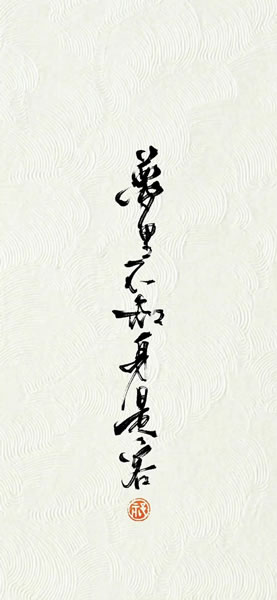 夢里不知身是客